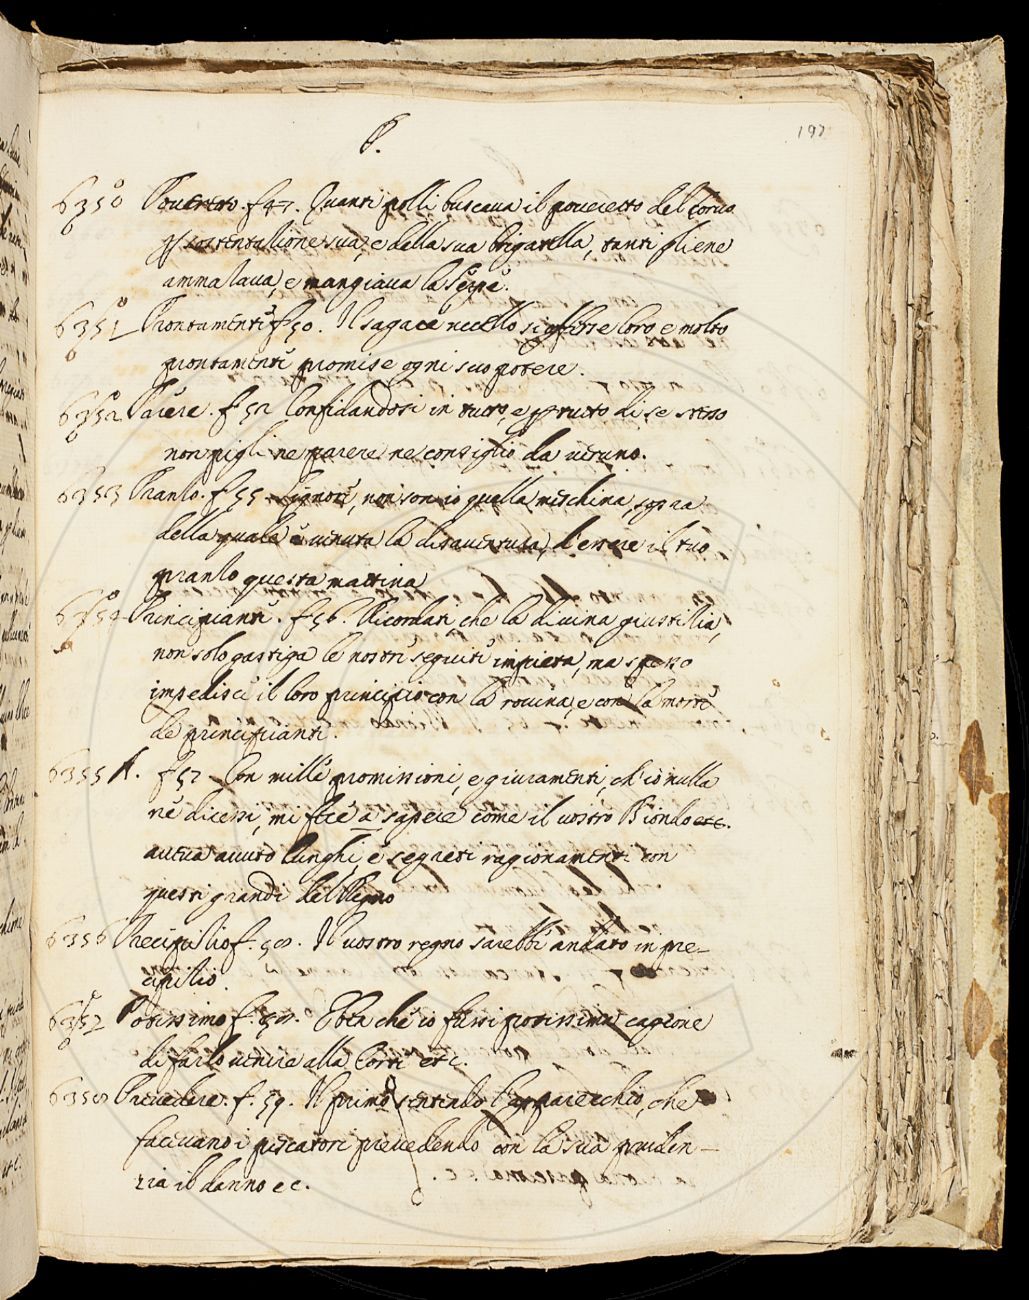 197
P.
6350 Poveretto. f. 47. Quanti polli buscava il poveretto del corvo
p sostentazione sua, e della sua brigatella, tanti gliene
ammalava, e mangiava la serpe.
6351 Prontamente f. 50. Il sagace uccello si offerse loro e molto
prontamente promise ogni suo potere.
6352 Parere. f. 52 Confidandosi in tutto, e p tutto di se stesso
non pigli ne parere ne consiglio da veruno.
6353 Pianto. f. 55. Signore, non son io quella meschina, sopra
della quale è venuta la disaventura, d'essere il tuo
pianto questa mattina
6354 Principianti. f. 56. Ricordati che la divina giustitia,
non solo gastiga le nostre seguite impietà, ma spesso
impedisce il loro principio con la rovina, e con la morte
de principianti.
6355 A. f. 57. Con mille promissioni, e giuramenti, ch'io nulla
ne dicessi, mi fece a sapere come il vostro Biondo etc.
aveva avuto lunghi, e segreti ragionamenti con
questi grandi del Regno
6356 Precipitio f. 58. Il vostro regno sarebbe andato in pre-
cipitio.
6357 Potissimo f. 58. Ebbi che io fussi potissima cagione
di farlo venire alla Corte etc.
6358 Prevedere. f. 59. Il primo sentendo l'apparecchio, che
facevano i pescatori prevedendo con la sua pruden-
zia il danno ec.